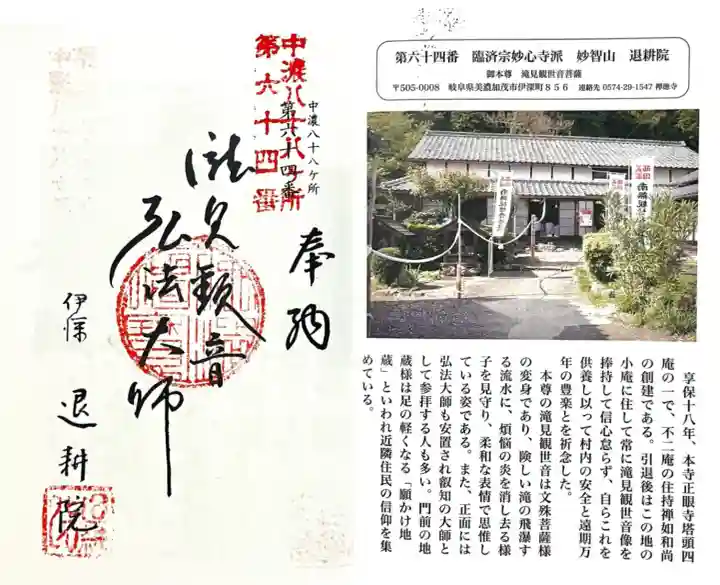 中濃八十八ヶ所
第六十四番
中濃八十八ケ所
第六十四番
奉納
滝見観音
弘法大師
伊深 退耕院
第六十四番 臨済宗妙心寺派 妙智山 退耕院
御本尊 滝見観世音菩薩
〒505-0008 岐阜県美濃加茂市伊深町856 連絡先 0574-29-1547 禅徳寺
享保十八年、本寺正眼寺塔頭四
庵の一で、不二庵の住持禅如和尚
の創建である。引退後はこの地の
小庵に住して常に滝見観世音像を
捧持して信心怠らず、自らこれを
供養し以って村内の安全と遠期万
年の豊楽とを祈念した。
本尊の滝見観世音は文殊菩薩様
の変身であり、険しい滝の飛瀑す
る流水に、煩悩の炎を消し去る様
子を見守り、柔和な表情で思惟し
ている姿である。また、正面には
弘法大師も安置され叡知の大師と
して参拝する人も多い。門前の地
蔵様は足の軽くなる「願かけ地
蔵」といわれ近隣住民の信仰を集
めている。